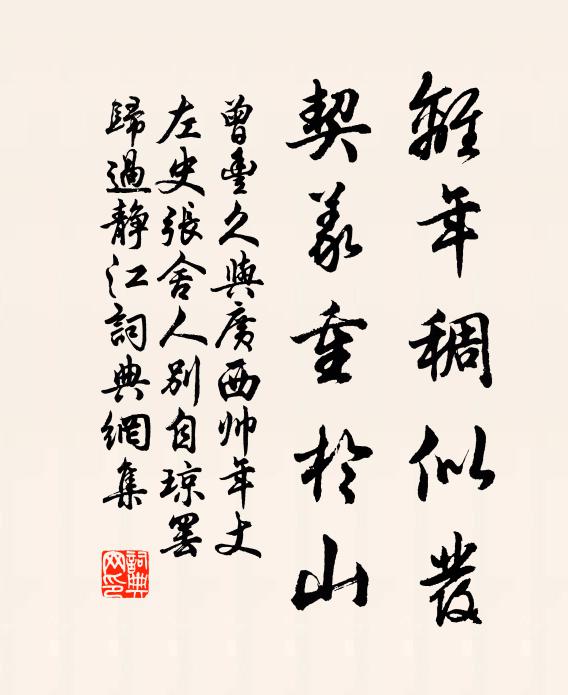 離年稠似發
契義重於山
曾豐久與廣西帥年丈
左史張舍人別自瓊罷
歸過靜江詞典網集
詞典
網印